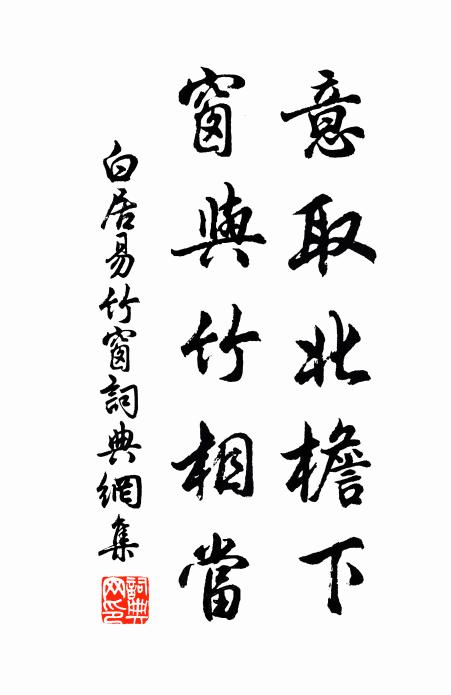 意取北檐下
窗與竹相當
白居易竹窗詞典網集
詞典網印